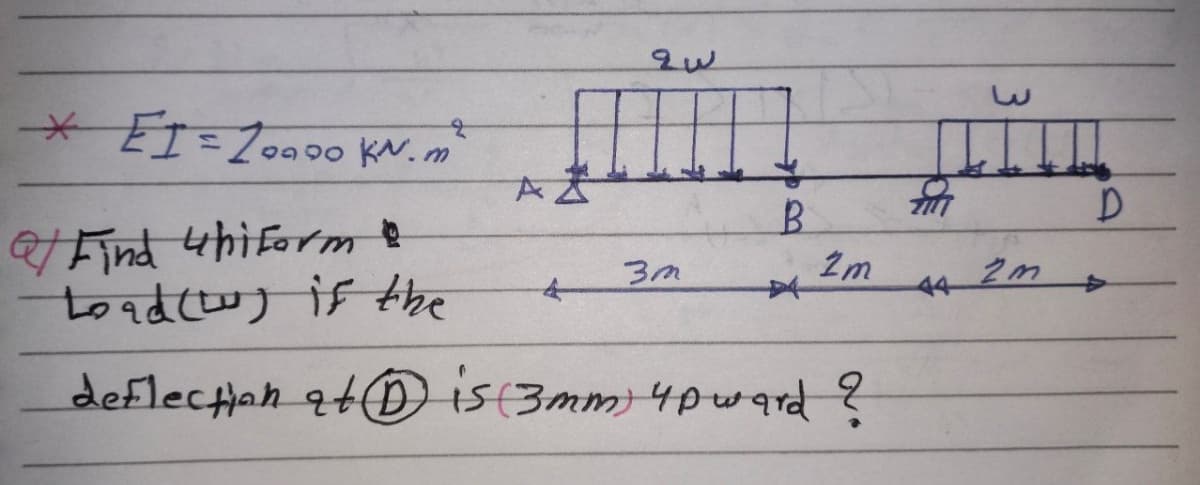 2w
w
* EI = 20000 KN.m²
A
B
D
Q/ Find uniform
Load (w) if the
3m
2m
2m
deflection at D is (3mm) upward ?